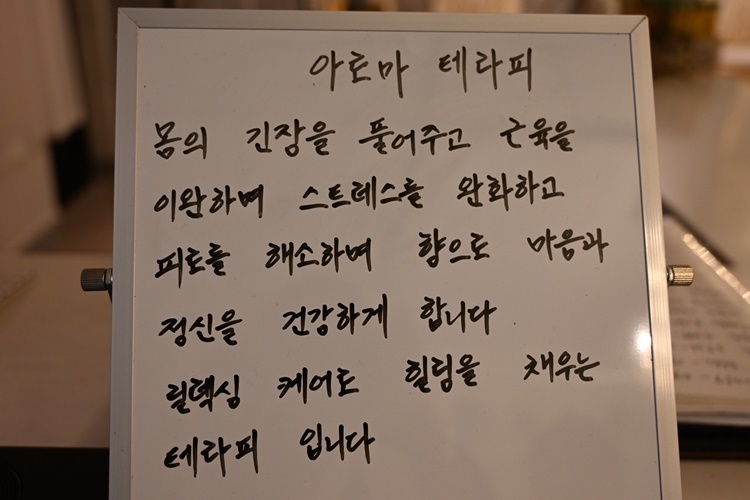 아로마 테라피
몸의 긴장을 풀어주고 근육을
이완하며 스트레스를 완화하고
피로를 해소하며 향으로 마음과
정신을 건강하게 합니다
릴렉싱 케어로 힐링을 채우는
테라피 입니다